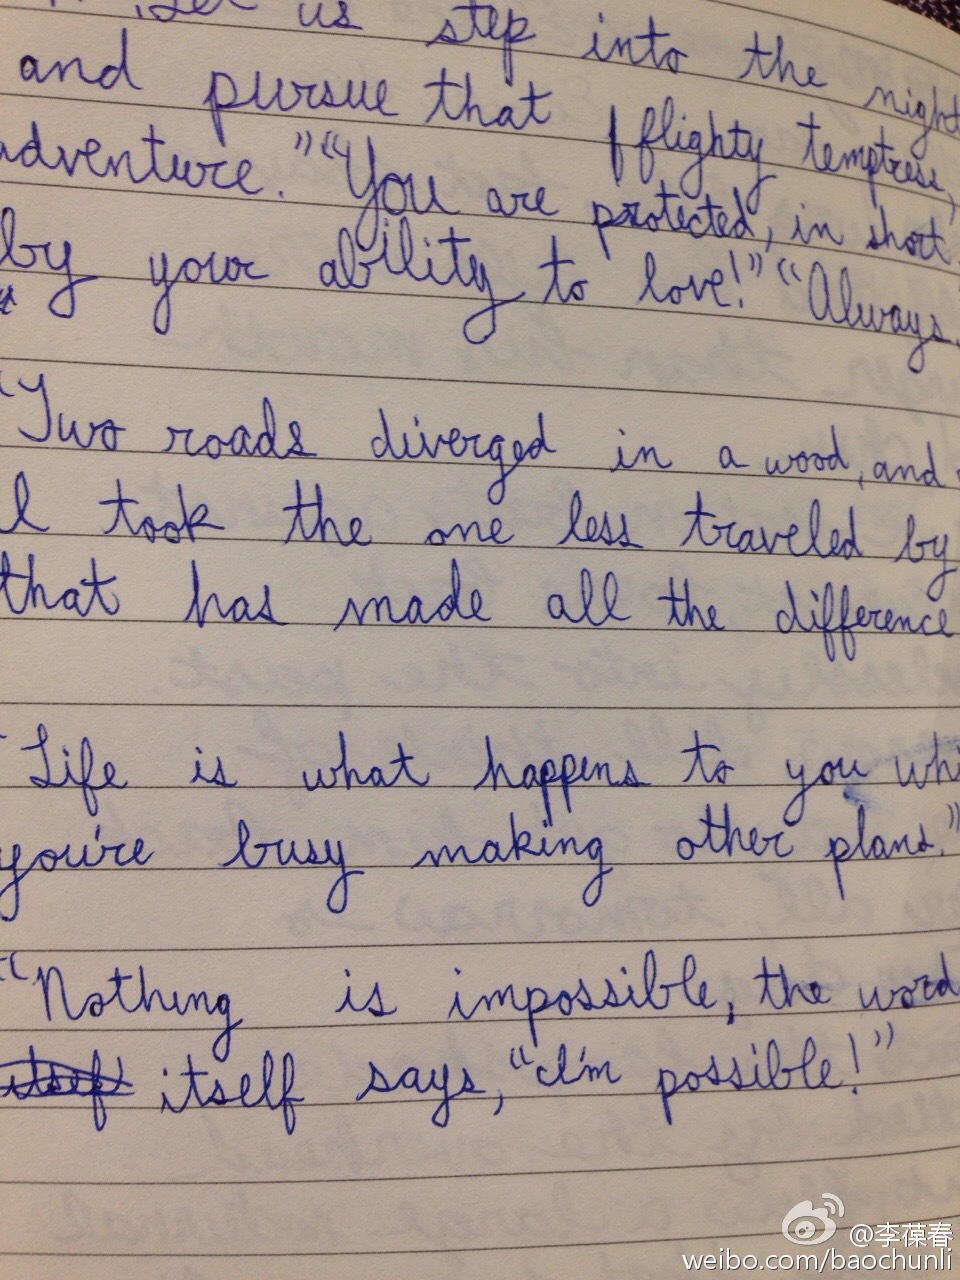 Let us step into the night
and pursue that flighty temptress,
adventure." "You are protected, in short,
by your ability to love!" "Always.
"Two roads diverged in a wood, and
I took the one less traveled by
that has made all the difference
Life is what happens to you whi
you're busy making other plans."
"Nothing is impossible, the word
itself itself says, "I'm possible!"
@李葆春
weibo.com/baochunli